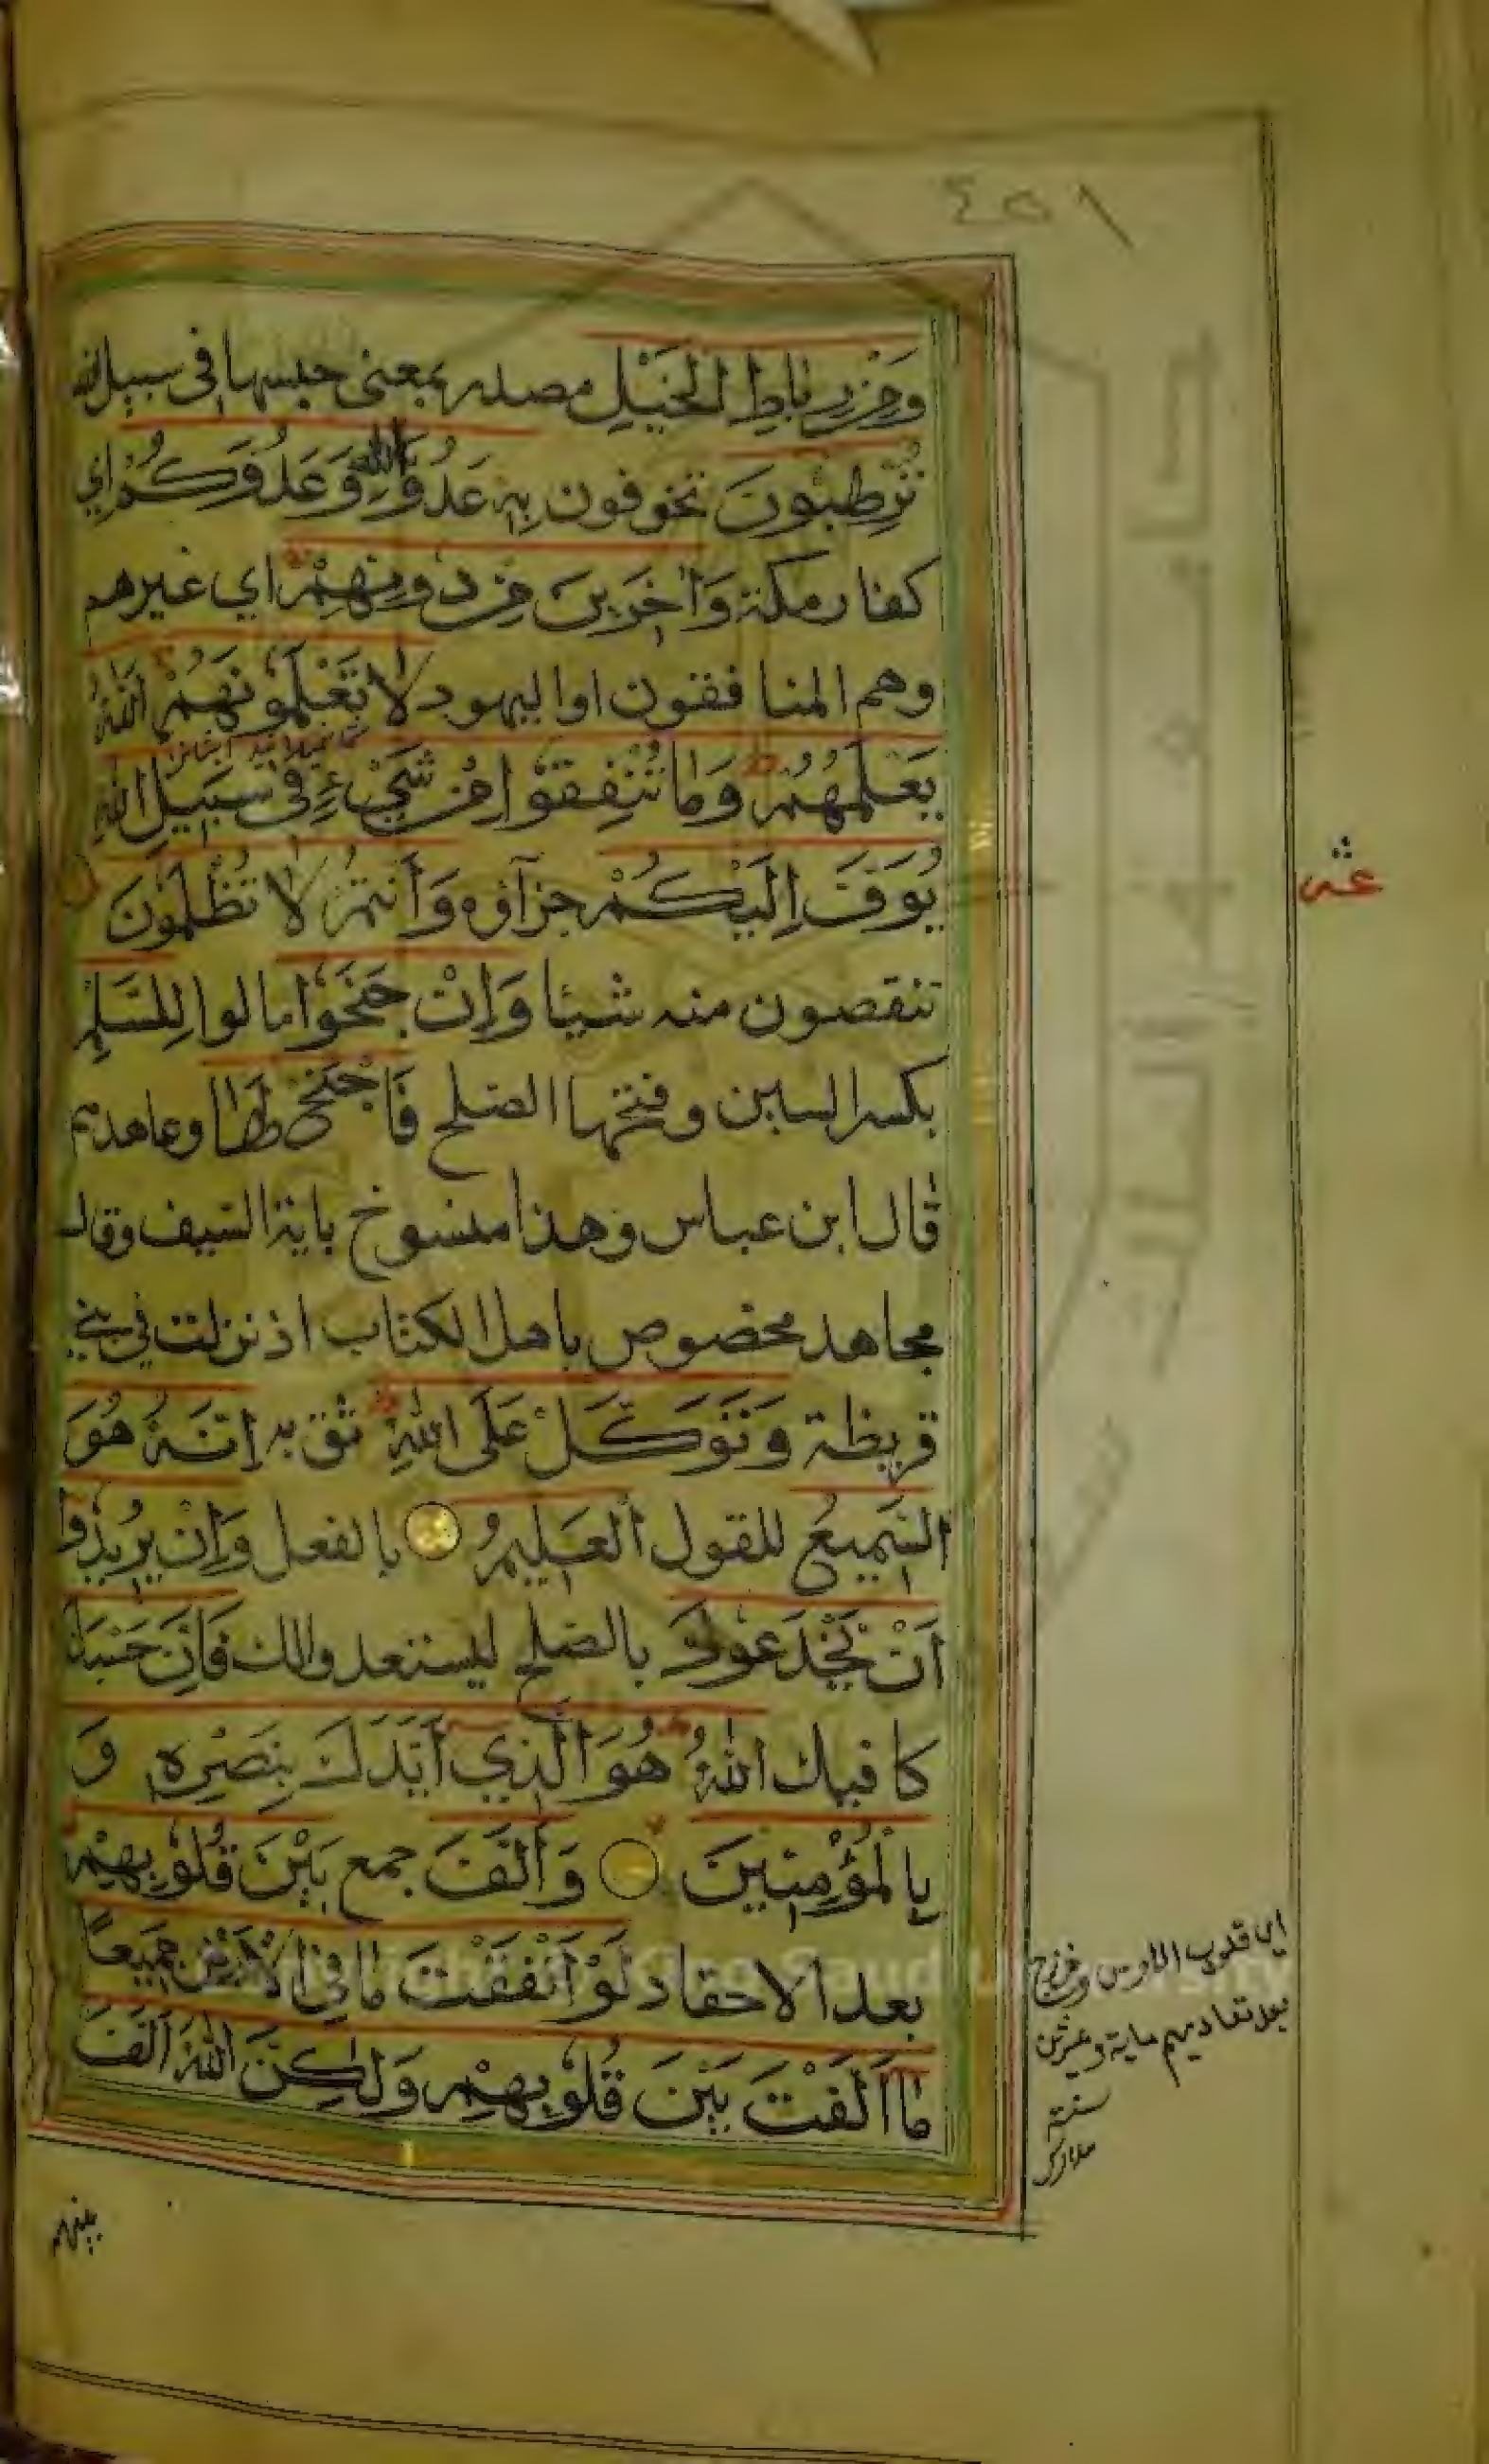 ٤٥١
وَمِنْ رِبَاطِ الْخَيْلِ مصدر بمعنى حبسها في سبيل الله
تُرْهِبُونَ تخوفون بِهِ عَدُوَّ اللهِ وَعَدُوَّكُمْ اي
كفار مكة وَآخَرِينَ مِنْ دُونِهِمْ اي غيرهم
وهم المنافقون او اليهود لَا تَعْلَمُونَهُمْ اَللهُ
يَعْلَمُهُمْ وَمَا تُنْفِقُوا مِنْ شَيْءٍ فِي سَبِيلِ اللهِ
يُوَفَّ اِلَيْكُمْ جزآؤه وَأَنْتُمْ لَا تُظْلَمُونَ
تنقصون منه شيئا وَاِنْ جَنَحُوا مالوا لِلسَّلْمِ
بكسر السين وفتحها الصلح فَاجْنَحْ لَهَا وعاهدهم
قال ابن عباس وهذا منسوخ باية السيف وقال
مجاهد مخصوص باهل الكتاب اذ نزلت في بني
قريظة وَتَوَكَّلْ عَلَى اللهِ ثق به اِنَّهُ هُوَ
السَّمِيعُ للقول الْعَلِيمُ بالفعل وَاِنْ يُرِيدُوا
اَنْ يَخْدَعُوكَ بالصلح ليستعدوا لك فَاِنَّ حَسْبَكَ
كافيك اللهُ هُوَ الَّذِي اَيَّدَكَ بِنَصْرِهِ وَ
بِالْمُؤْمِنِينَ وَأَلَّفَ جمع بَيْنَ قُلُوبِهِمْ
بعد الاحقاد لَوْ اَنْفَقْتَ مَا فِي الْاَرْضِ جَمِيعًا
مَا اَلَّفْتَ بَيْنَ قُلُوبِهِمْ وَلٰكِنَّ اللهَ اَلَّفَ
بينهم
اي قلوب الاوس وخزرج
بعد تعاديهم ماية وعشرين
سنة
مدارك